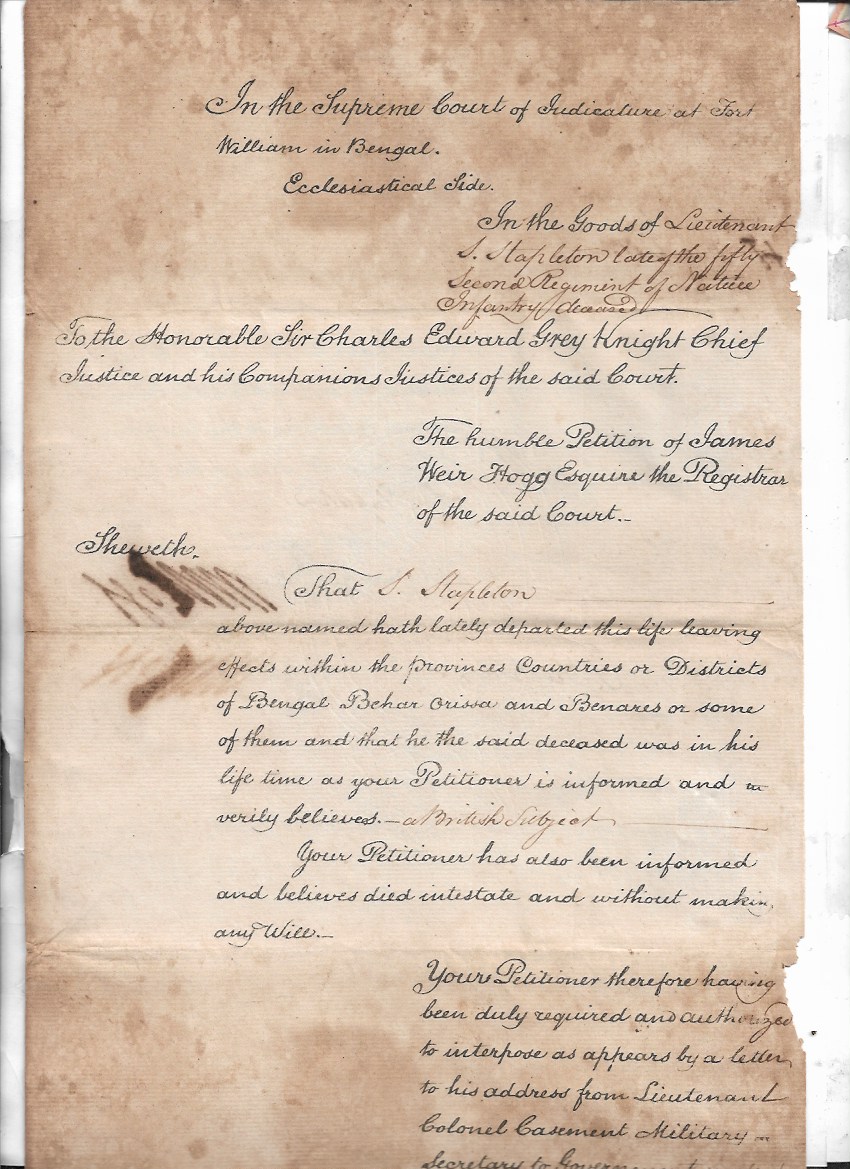 In the Supreme Court of Judicature at Fort
William in Bengal.
Ecclesiastical Side.
In the Goods of Lieutenant
S. Stapleton late of the fifty
Second Regiment of Native
Infantry deceased
To the Honorable Sir Charles Edward Grey Knight Chief
Justice and his Companions Justices of the said Court.
The humble Petition of James
Weir Hogg Esquire the Registrar
of the said Court.
Sheweth.
That S. Stapleton
above named hath lately departed this life leaving
effects within the provinces Countries or Districts
of Bengal Behar Orissa and Benares or some
of them and that he the said deceased was in his
life time as your Petitioner is informed and
verily believes. a British Subject
Your Petitioner has also been informed
and believes died intestate and without makin
any Will.
Your Petitioner therefore having
been duly required and authorized
to interpose as appears by a letter
to his address from Lieutenant
Colonel Casement Military
Secretary to